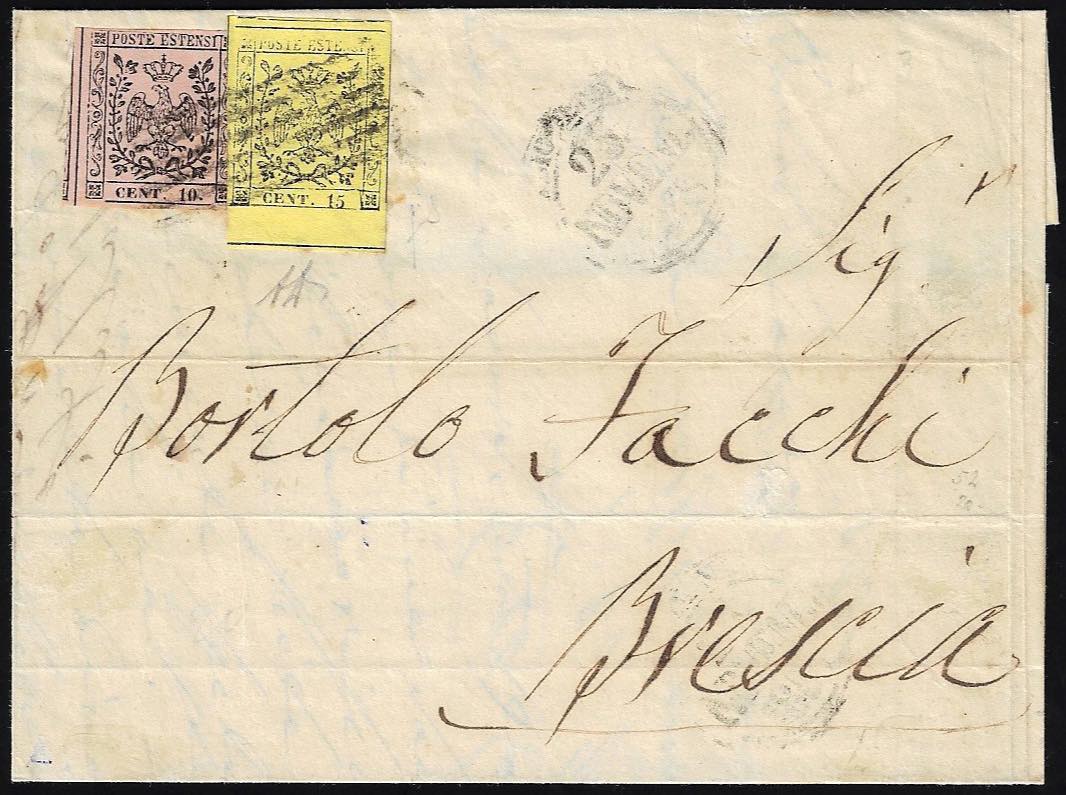 POSTE ESTENSI
CENT. 10.
POSTE ESTENSI
CENT. 15
23
Sig.r
Bortolo Facchi
Brescia
52
20